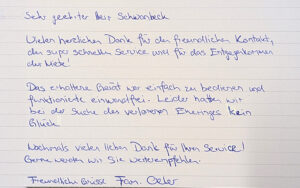 Sehr geehrter Herr Schwanbeck
Vielen herzlichen Dank für den freundlichen Kontakt,
den super schnellen Service und für das Entgegenkommen
der Miete!
Das erhaltene Gerät war einfach zu bedienen und
funktionierte einwandfrei. Leider hatten wir
bei der Suche des verlorenen Eherings kein
Glück.
Nochmals vielen lieben Dank für Ihren Service!
Gerne werden wir Sie weiterempfehlen.
Freundliche Grüsse Fam.